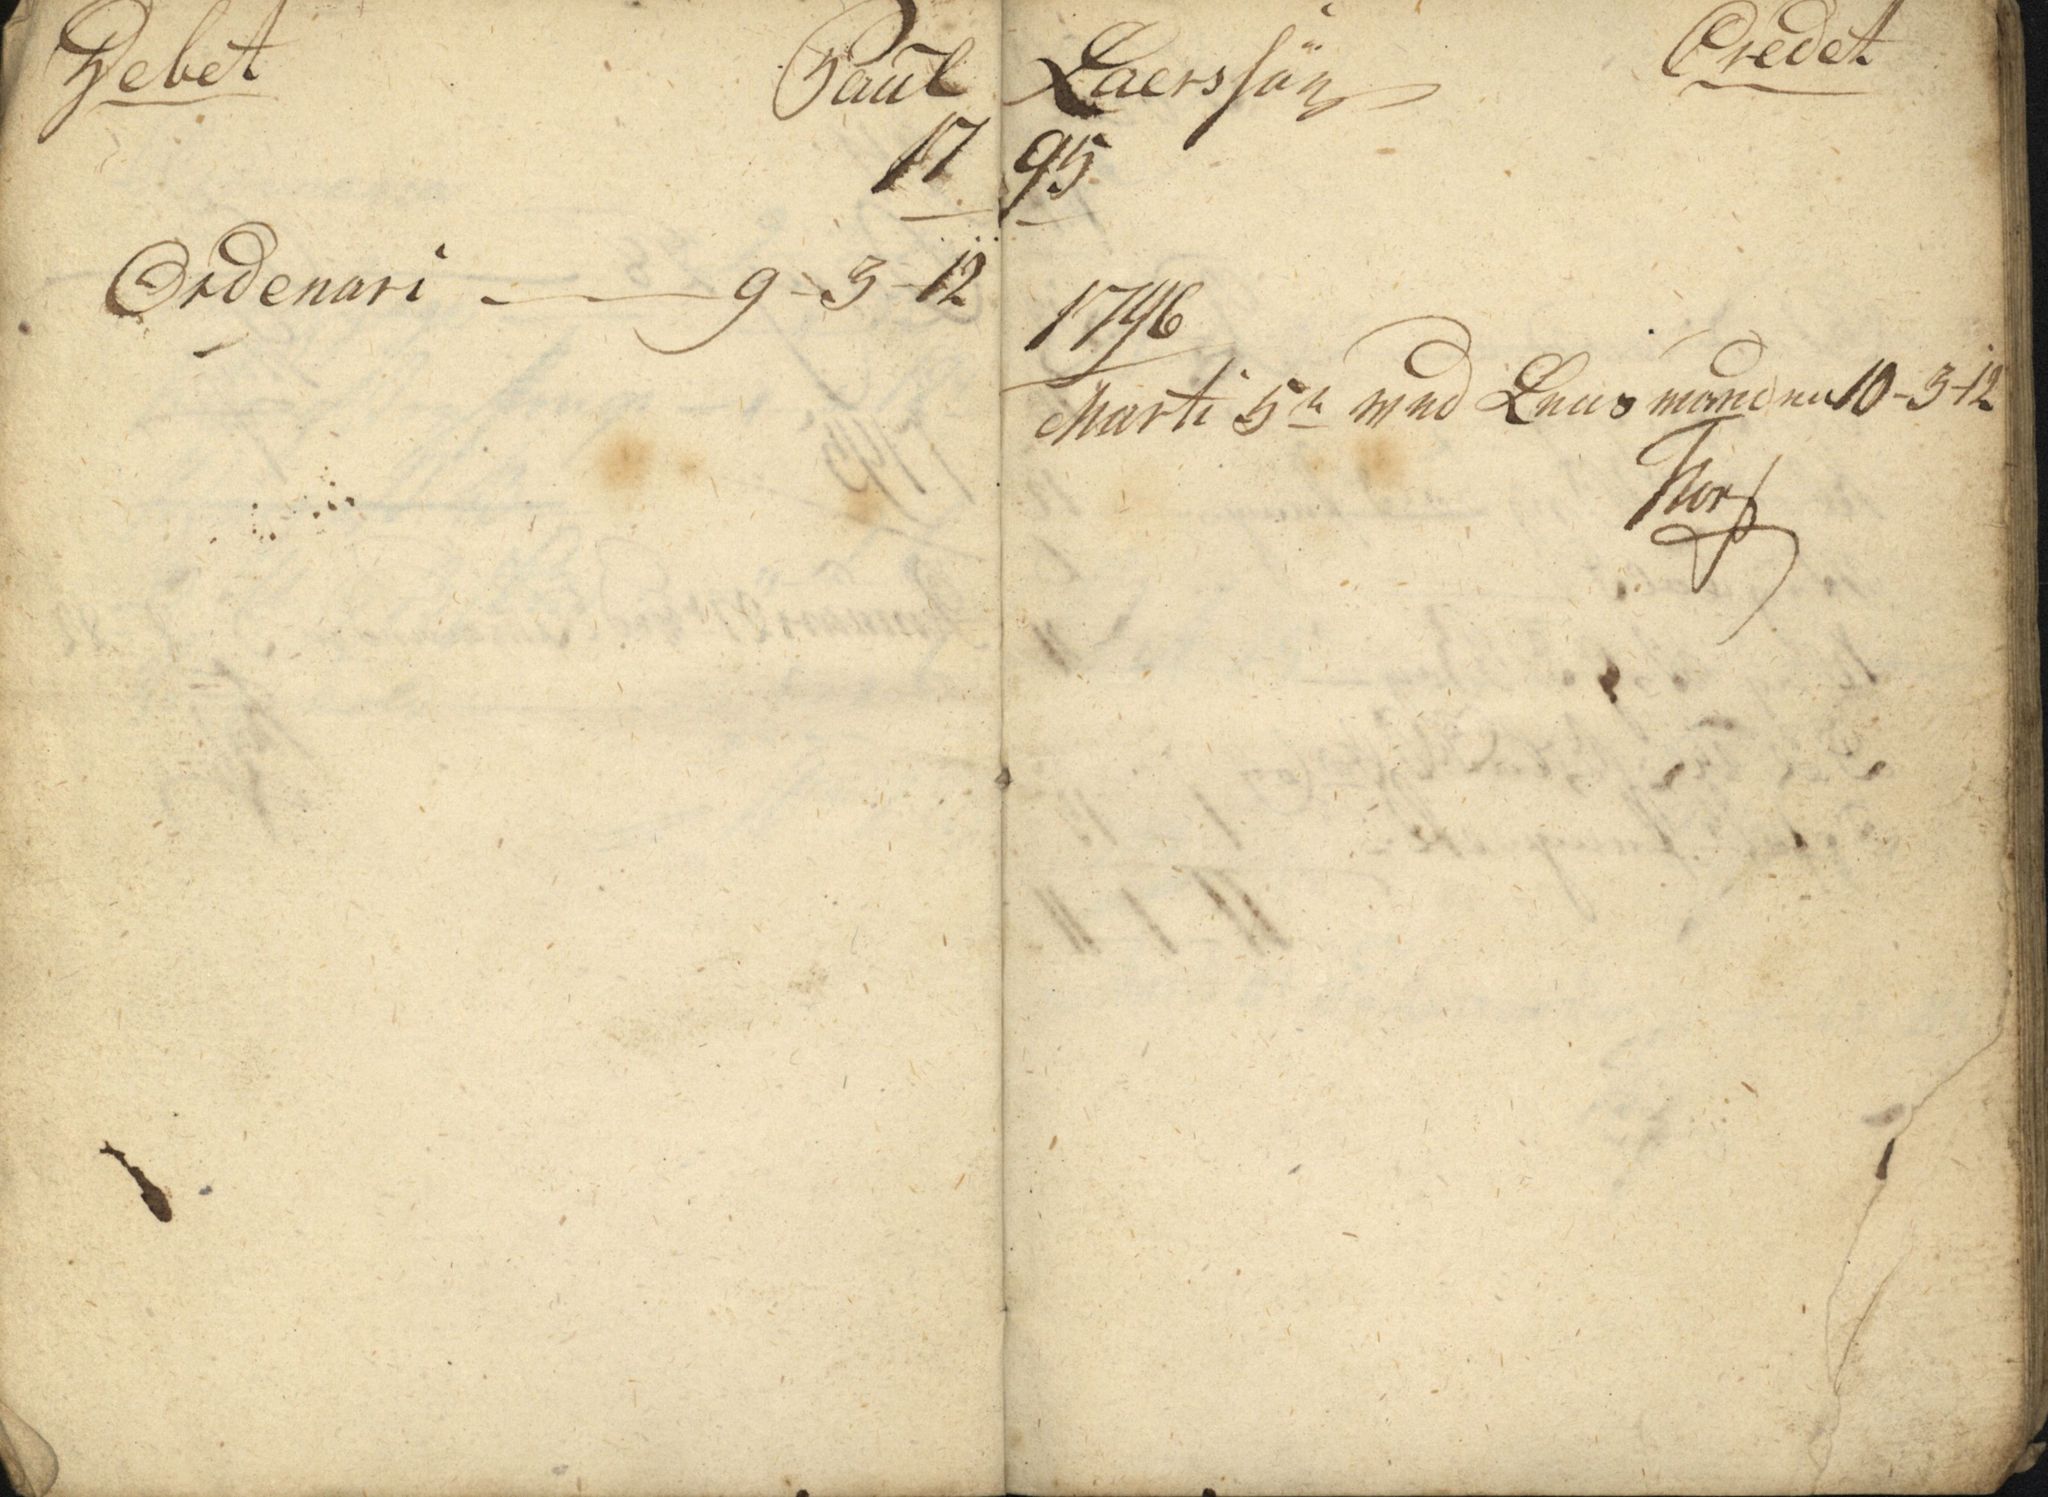 Debet Paul Laerssön Credet
1795
Ordenari 9-3-12
1796
Marti 5te ved Lens manden 10-3-12